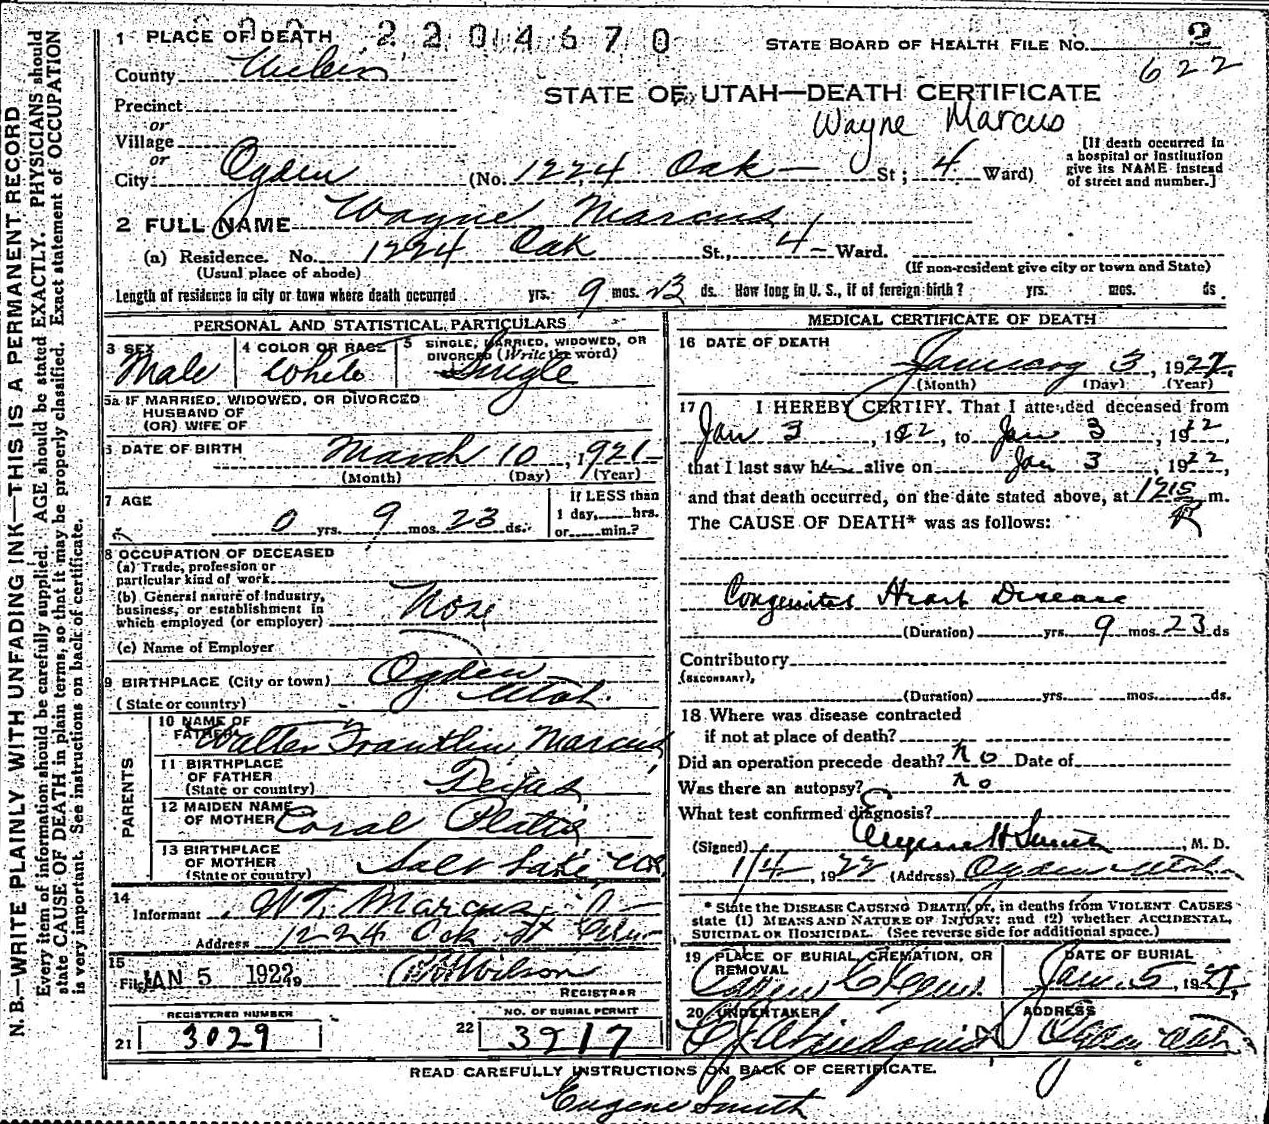 1 PLACE OF DEATH 2204670 STATE BOARD OF HEALTH FILE NO. 2
622
County Weber
STATE OF UTAH—DEATH CERTIFICATE
Precinct
Wayne Marcus
or
Village
or
City Ogden (No. 1224 Oak St; 4 Ward)
[If death occurred in
a hospital or institution
give its NAME instead
of street and number.]
2 FULL NAME Wayne Marcus
(a) Residence. No. 1224 Oak St., 4 Ward.
(Usual place of abode) (If non-resident give city or town and State)
Length of residence in city or town where death occurred yrs. 9 mos. 23 ds. How long in U. S., if of foreign birth? yrs. mos. ds.
PERSONAL AND STATISTICAL PARTICULARS
3 SEX Male
4 COLOR OR RACE White
5 SINGLE, MARRIED, WIDOWED, OR
DIVORCED (Write the word)
Single
5a IF MARRIED, WIDOWED, OR DIVORCED
HUSBAND OF
(OR) WIFE OF
6 DATE OF BIRTH March 10, 1921
(Month) (Day) (Year)
7 AGE
0 yrs. 9 mos. 23 ds.
If LESS than
1 day, hrs.
or min.?
8 OCCUPATION OF DECEASED
(a) Trade, profession or
particular kind of work
(b) General nature of industry,
business, or establishment in
which employed (or employer) None
(c) Name of Employer
9 BIRTHPLACE (City or town) Ogden
(State or country) Utah
PARENTS
10 NAME OF
FATHER Walter Franklin Marcus
11 BIRTHPLACE
OF FATHER
(State or country) Texas
12 MAIDEN NAME
OF MOTHER Coral Platts
13 BIRTHPLACE
OF MOTHER
(State or country) Salt Lake
14
Informant W.F. Marcus
Address 1224 Oak St
15
Filed JAN 5 1922 Wilson
REGISTRAR
REGISTERED NUMBER
21 3029
NO. OF BURIAL PERMIT
22 3217
MEDICAL CERTIFICATE OF DEATH
16 DATE OF DEATH
January 3, 1922
(Month) (Day) (Year)
17 I HEREBY CERTIFY. That I attended deceased from
Jan 3, 1922, to Jan 3, 1922
that I last saw him alive on Jan 3, 1922,
and that death occurred, on the date stated above, at 1215 m.
The CAUSE OF DEATH* was as follows:
Congenital Heart Disease
(Duration) yrs. 9 mos. 23 ds
Contributory
(SECONDARY),
(Duration) yrs. mos. ds.
18 Where was disease contracted
if not at place of death?
Did an operation precede death? no Date of
Was there an autopsy? no
What test confirmed diagnosis?
(Signed) Eugene H Smith, M. D.
1/4, 1922 (Address) Ogden Utah
* State the DISEASE CAUSING DEATH, or, in deaths from VIOLENT CAUSES
state (1) MEANS AND NATURE OF INJURY; and (2) whether ACCIDENTAL,
SUICIDAL OR HOMICIDAL. (See reverse side for additional space.)
19 PLACE OF BURIAL, CREMATION, OR
REMOVAL
DATE OF BURIAL
Jan. 5, 1922
20 UNDERTAKER
ADDRESS
Ogden Utah
READ CAREFULLY INSTRUCTIONS ON BACK OF CERTIFICATE.
Eugene Smith
N. B.—WRITE PLAINLY WITH UNFADING INK—THIS IS A PERMANENT RECORD
Every item of information should be carefully supplied. AGE should be stated EXACTLY. PHYSICIANS should
state CAUSE OF DEATH in plain terms, so that it may be properly classified. Exact statement of OCCUPATION
is very important. See instructions on back of certificate.